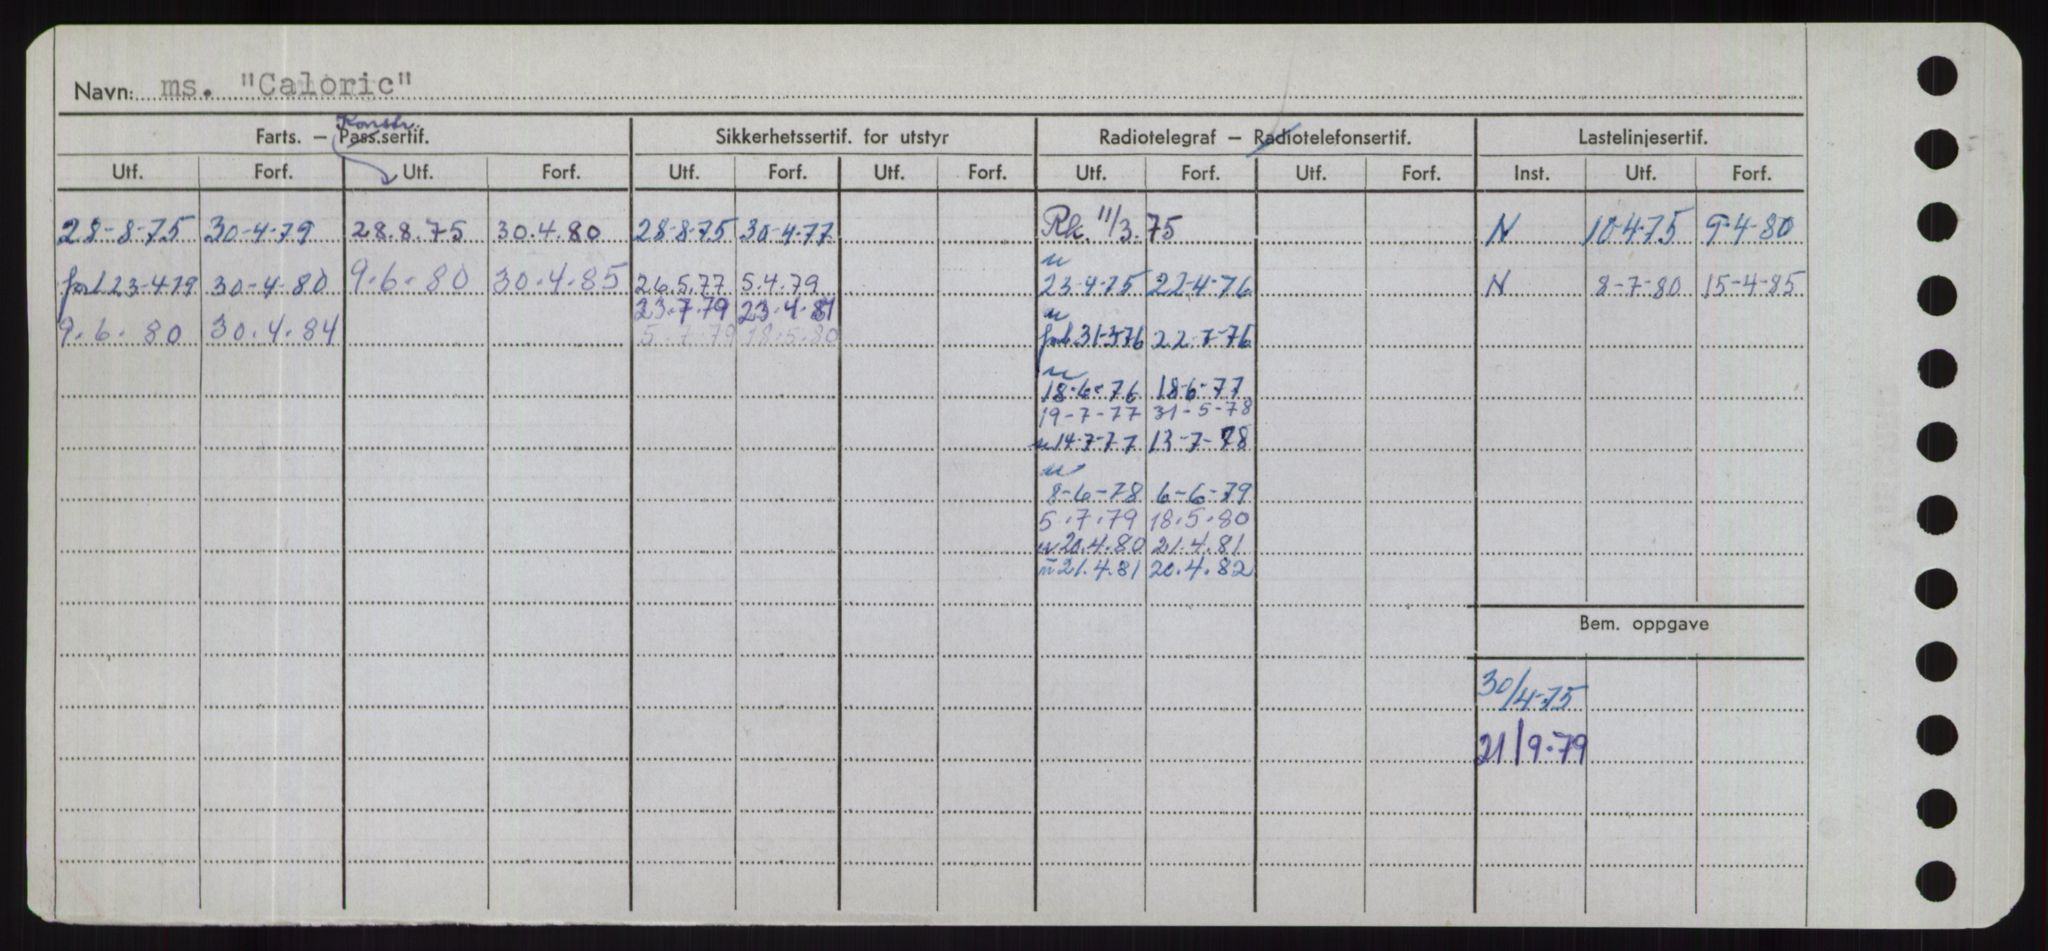 Navn: ms. "Caloric"
Konstr.
Farts. — Pass.sertif. Sikkerhetssertif. for utstyr Radiotelegraf — Radiotelefonsertif. Lastelinjesertif.
Utf. Forf. Utf. Forf. Utf. Forf. Utf. Forf. Utf. Forf. Utf. Forf. Inst. Utf. Forf.
28-8-75 30-4-79 28.8.75 30.4.80 28-8-75 30-4-77 Rk. 11/3.75 N 10-4-75 9-4-80
u
forl 23-4-79 30-4-80 9-6-80 30.4.85 26.5.77 5.4.79 23-4-75 22-4-76 N 8-7-80 15-4-85
23.7.79 23.4.81
u
9.6.80 30.4.84 5.7.79 18.5.80 forl 31-3-76 22-7-76
u
18-6-76 18-6-77
19-7-77 31-5-78
u 14-7-77 13-7-78
u
8-6-78 6-6-79
5.7.79 18.5.80
u 20.4.80 21.4.81
u 21.4.81 20.4.82
Bem. oppgave
30/4-75
21/9.79